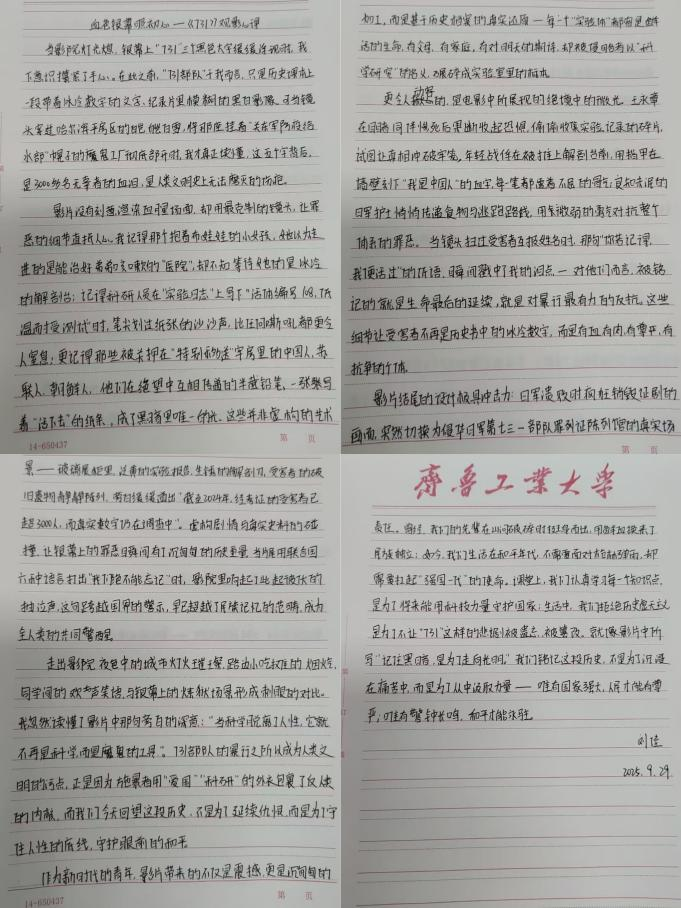 血色银幕映初心——《731》观影心得
当影院灯光熄，银幕上"731"三个黑色大字缓缓浮现时，我
下意识攥紧了手心。在此之前，"731部队"于我而言，只是历史课本上
一段带着冰冷数字的文字，纪录片里模糊的黑白影像。可当镜
头穿过哈尔滨平房区的
水部"幌子的魔鬼工厂彻底剖开时，我才真正读懂，这五个字背后，
是3000多名无辜者的血泪，是人类文明史上无法磨灭的伤疤。
影片没有刻意渲染血腥场面，却用最克制的镜头，让罪
恶的细节直抵人心。我记得那个抱着布娃娃的小女孩，她以为走
进的是能治好和咳嗽的"医院"，却不知等待她的是冰冷
的解剖台；记得科研人员在"实验日志"上写下"活体编号108，低
温耐受测试"时，笔尖划过纸张的沙沙声，比任何嘶吼都更令
人窒息；更记得那些被关押在"特别移送"牢房里的中国人、苏
联人、朝鲜人，他们在绝望中互相传递的半截铅笔、一张写
着"活下去"的纸条，成了黑暗里唯一的光。这些并非虚构的艺术
14-650437
第 页
加工，而是基于历史档案的真实还原——每一个"实验体"都曾是鲜
活的生命，有父母、有家庭、有对明天的期待，却被侵略者以"科
学研究"的名义，碾碎成实验室里的标本。
更令人动容的，是电影中所展现的绝境中的微光。王永章
在目睹同伴惨死后果断收起恐惧，偷偷收集实验记录的碎片，
试图让真相冲破牢笼。年轻战俘在被推上解剖台前，用指甲在
墙壁刻下"我是中国人"的血字，每一笔都透着不屈的骨气；良知未泯的
日军护士悄悄传递食物与逃跑路线，用微弱的勇气对抗整个
体系的罪恶。当镜头扫过受害者互报姓名时，那句"你若记得，
我便活过"的低语，瞬间戳中了我的泪点——对他们而言，被铭
记的就是生命最后的延续，就是对暴行最有力的反抗。这些
细节让受害者不再是历史书中的冰冷数字，而是有血有肉、有尊严、有
抗争的个体。
影片结尾的设计极具冲击力：日军溃败时疯狂销毁证据的
画面，突然切换为侵华日军第七三一部队罪证陈列馆的真实场
景——玻璃展柜里，泛黄的实验报告、生锈的解剖刀、受害者的破
旧衣物静静陈列，旁白缓缓道出"截至2024年，经考证的受害者已
超3000人，而真实数字仍在调查中"。虚构剧情与真实史料的碰
撞，让银幕上的罪恶瞬间有了沉甸甸的历史重量。当片尾用联合国
六种语言打出"我们绝不能忘记"时，影院里响起了此起彼伏的
抽泣声，这句跨越国界的警示，早已超越了民族记忆的范畴，成为
全人类的共同警醒。
走出影院，夜色中的城市灯火璀璨，路边小吃摊的烟火、
同学间的欢声笑语，与银幕上的炼狱场景形成刺眼的对比。
我忽然读懂了影片中那句旁白的深意："当科学脱离了人性，它就
不再是科学，而是魔鬼的工具"。731部队的暴行之所以成为人类文
明的污点，正是因为施暴者用"爱国""科研"的外衣包裹了反人类
的内核，而我们今天回望这段历史，不是为了延续仇恨，而是为了守
住人性的底线，守护眼前的和平。
作为新时代的青年，影片带来的不仅是震撼，更是沉甸甸的
14-650437
第 页
齊魯工業大學
责任。曾经，我们的先辈在山河破碎时挺身而出，用鲜血换来了
民族独立；如今，我们生活在和平年代，不需要面对枪林弹雨，却
需要扛起"强国一代"的使命。课堂上，我们认真学习每一个知识点，
是为了将来能用科技力量守护国家；生活中，我们拒绝历史虚无主义，
是为了不让"731"这样的悲剧被遗忘、被篡改。就像影片中所
写"记住黑暗，是为了走向光明"。我们铭记这段历史，不是为了沉浸
在痛苦中，而是为了从中汲取力量——唯有国家强大，人民才能有尊
严；唯有警钟长鸣，和平才能永驻。
刘佳
2025.9.29